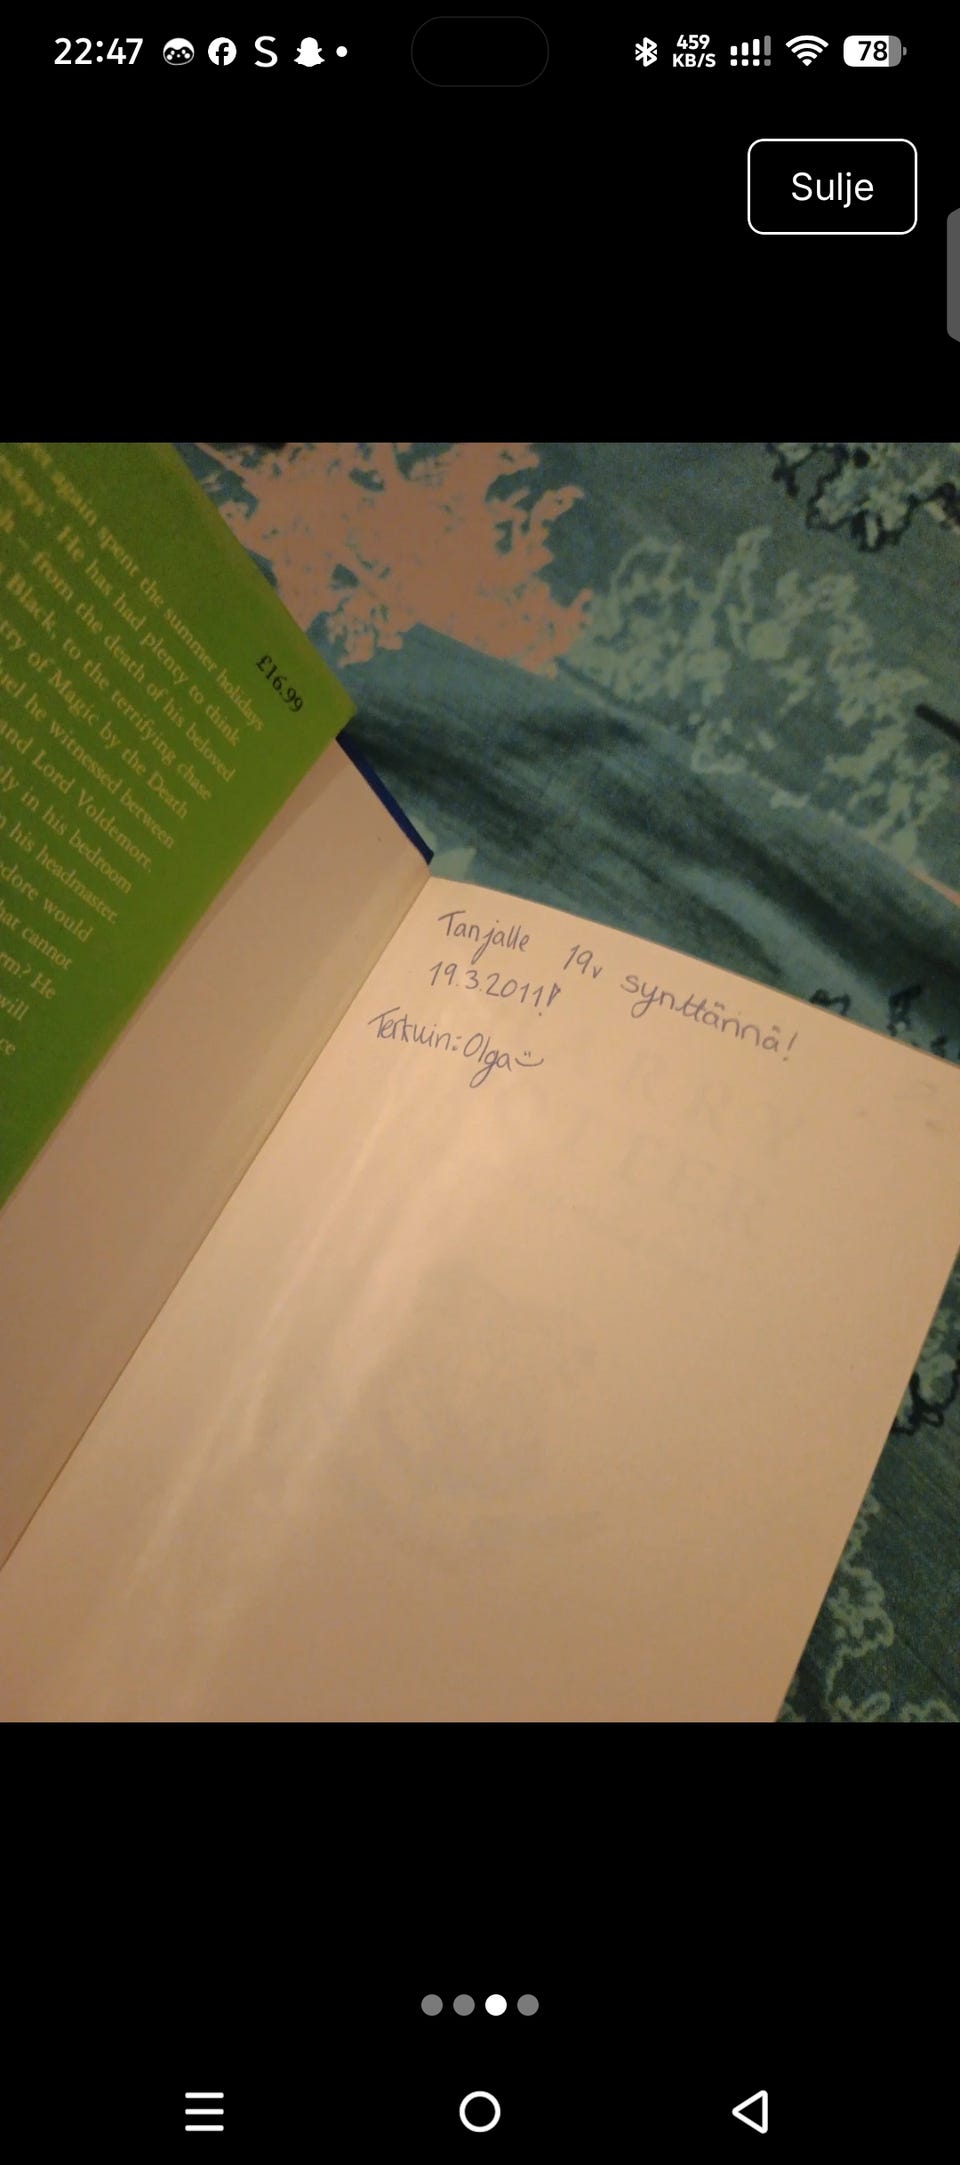 22:47
459
KB/S
78
Sulje
again spent the summer holidays
He has had plenty to think
from the death of his beloved
Black, to the terrifying chase
of Magic by the Death
he witnessed between
and Lord Voldemort.
in his bedroom
his headmaster.
would
cannot
He
will
£16.99
Tanjalle 19v synttärinä!
19.3.2011!
Terkuin: Olga